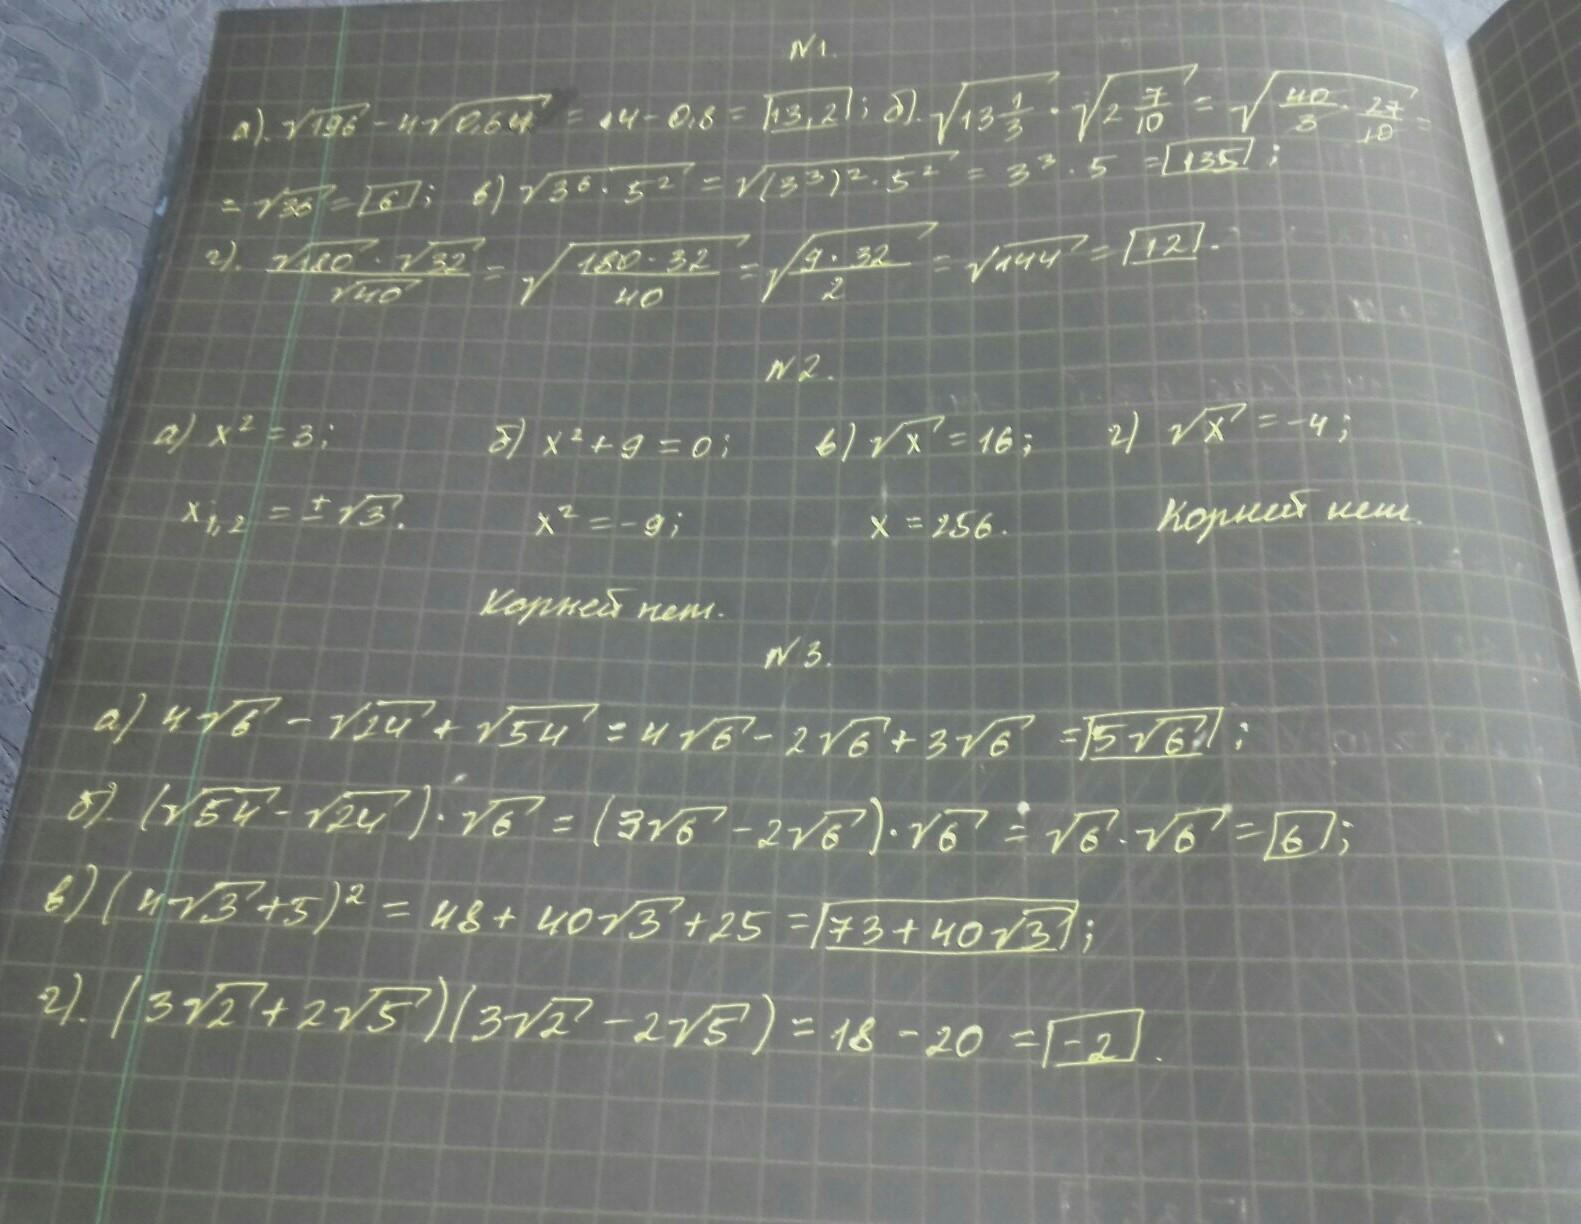 N1.
а). √196 - 4√0,64 = 14 - 0,8 = 13,2; б). √13 1/3 · √2 7/10 = √40/3 · 27/10 =
= √36 = 6; в) √3⁶ · 5² = √(3³)² · 5² = 3³ · 5 = 135;
г). √180 · √32/√40 = √180 · 32/40 = √9 · 32/2 = √144 = 12.
N2.
а) x² = 3; б) x² + 9 = 0; в) √x = 16; г) √x = -4;
x₁,₂ = ± √3. x² = -9; x = 256. Корней нет.
Корней нет.
N3.
а) 4√6 - √24 + √54 = 4√6 - 2√6 + 3√6 = 5√6;
б). (√54 - √24) · √6 = (3√6 - 2√6) · √6 = √6 · √6 = 6;
в) (4√3 + 5)² = 48 + 40√3 + 25 = 73 + 40√3;
г). (3√2 + 2√5)(3√2 - 2√5) = 18 - 20 = -2.